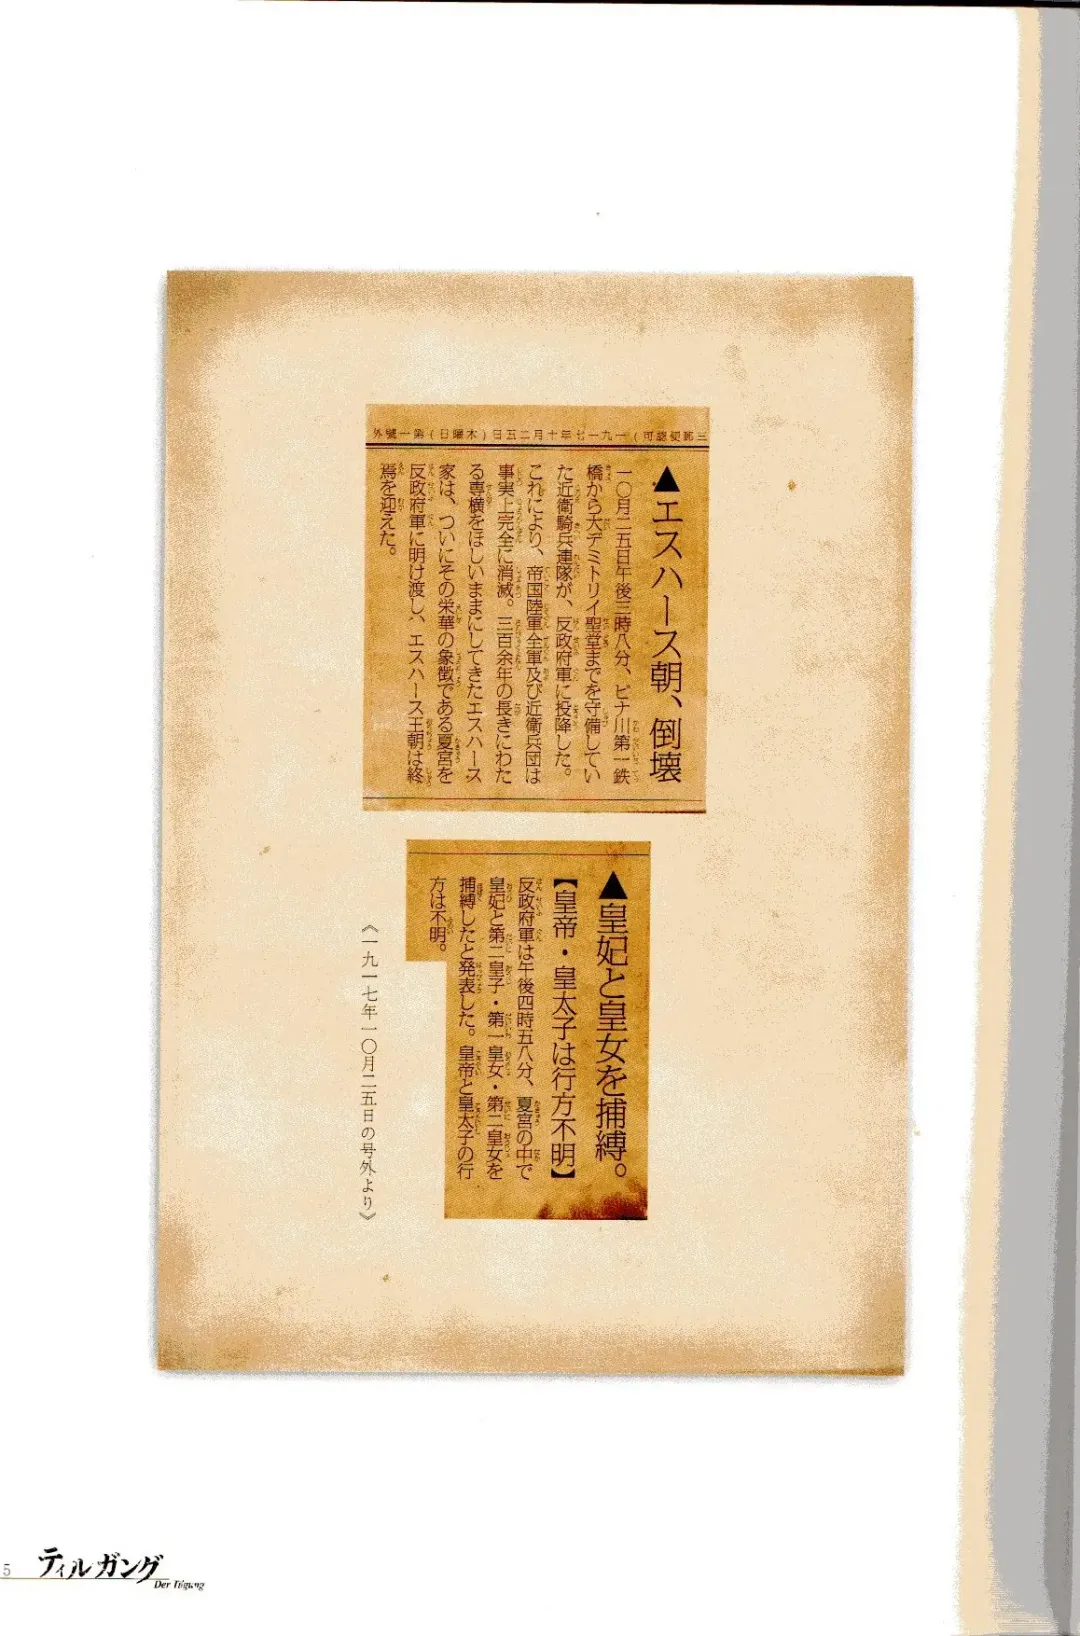 外號一第(日曜木)日五二月十年七一九一(可認便郵三
▲エスハース朝、倒壊
一〇月二五日午後三時八分、ビナ川第一鉄
橋から大デミトリイ聖堂までを守備してい
た近衛騎兵連隊が、反政府軍に投降した。
これにより、帝国陸軍全軍及び近衛兵団は
事実上完全に消滅。三百余年の長きにわた
る専横をほしいままにしてきたエスハース
家は、ついにその栄華の象徴である夏宮を
反政府軍に明け渡し、エスハース王朝は終
焉を迎えた。
▲皇妃と皇女を捕縛。
【皇帝・皇太子は行方不明】
反政府軍は午後四時五八分、夏宮の中で
皇妃と第二皇子・第一皇女・第二皇女を
捕縛したと発表した。皇帝と皇太子の行
方は不明。
《一九一七年一〇月二五日の号外より》
5
ティルガング
Der